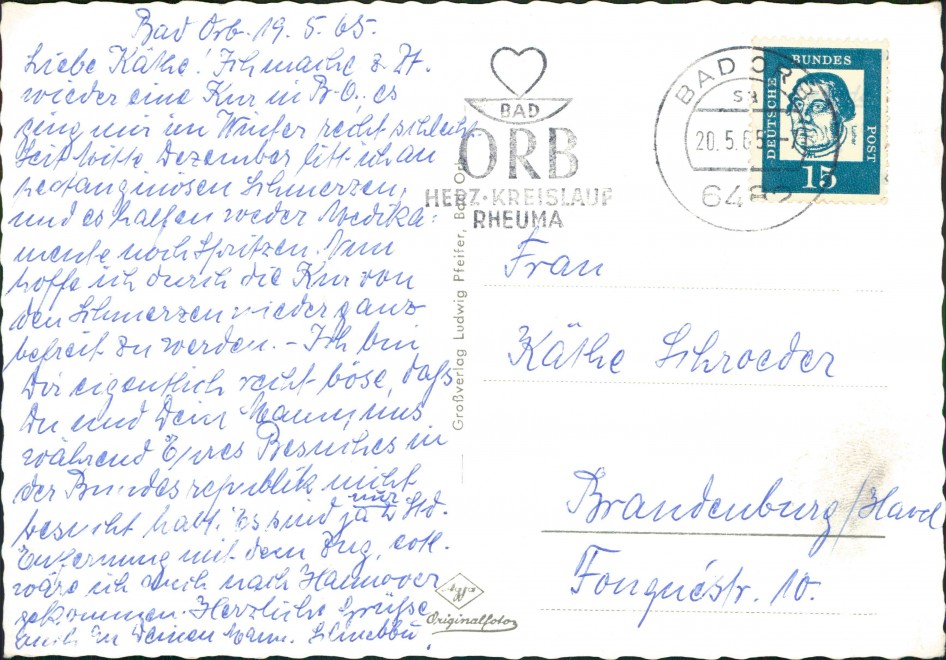 Bad Orb. 19.5.65.
Liebe Käthe! Ich mache z. Zt.
wieder eine Kur in B.O., es
ging mir im Winter recht schlecht.
Seit Mitte Dezember litt ich an
pectanginösen Schmerzen,
und es halfen weder Medika-
mente noch Spritzen. Nun
hoffe ich durch die Kur von
den Schmerzen wieder ganz
befreit zu werden. - Ich bin
Dir eigentlich recht böse, daß
Du und Dein Mann, uns
während Eures Besuches in
der Bundesrepublik nicht
besucht habt. Es sind ja nur 2 Std.
Entfernung mit dem Zug, evtl.
wäre ich auch nach Hannover
gekommen. Herzliche Grüße
auch an Deinen Mann.
BAD
ORB
HERZ-KREISLAUF
RHEUMA
BAD ORB
20.5.65
DEUTSCHE
BUNDES
POST
15
Großverlag Ludwig Pfeifer, Bad Orb
Frau
Käthe Schroeder
Brandenburg/Havel
Fouquéstr. 10.
Agfa
Originalfoto